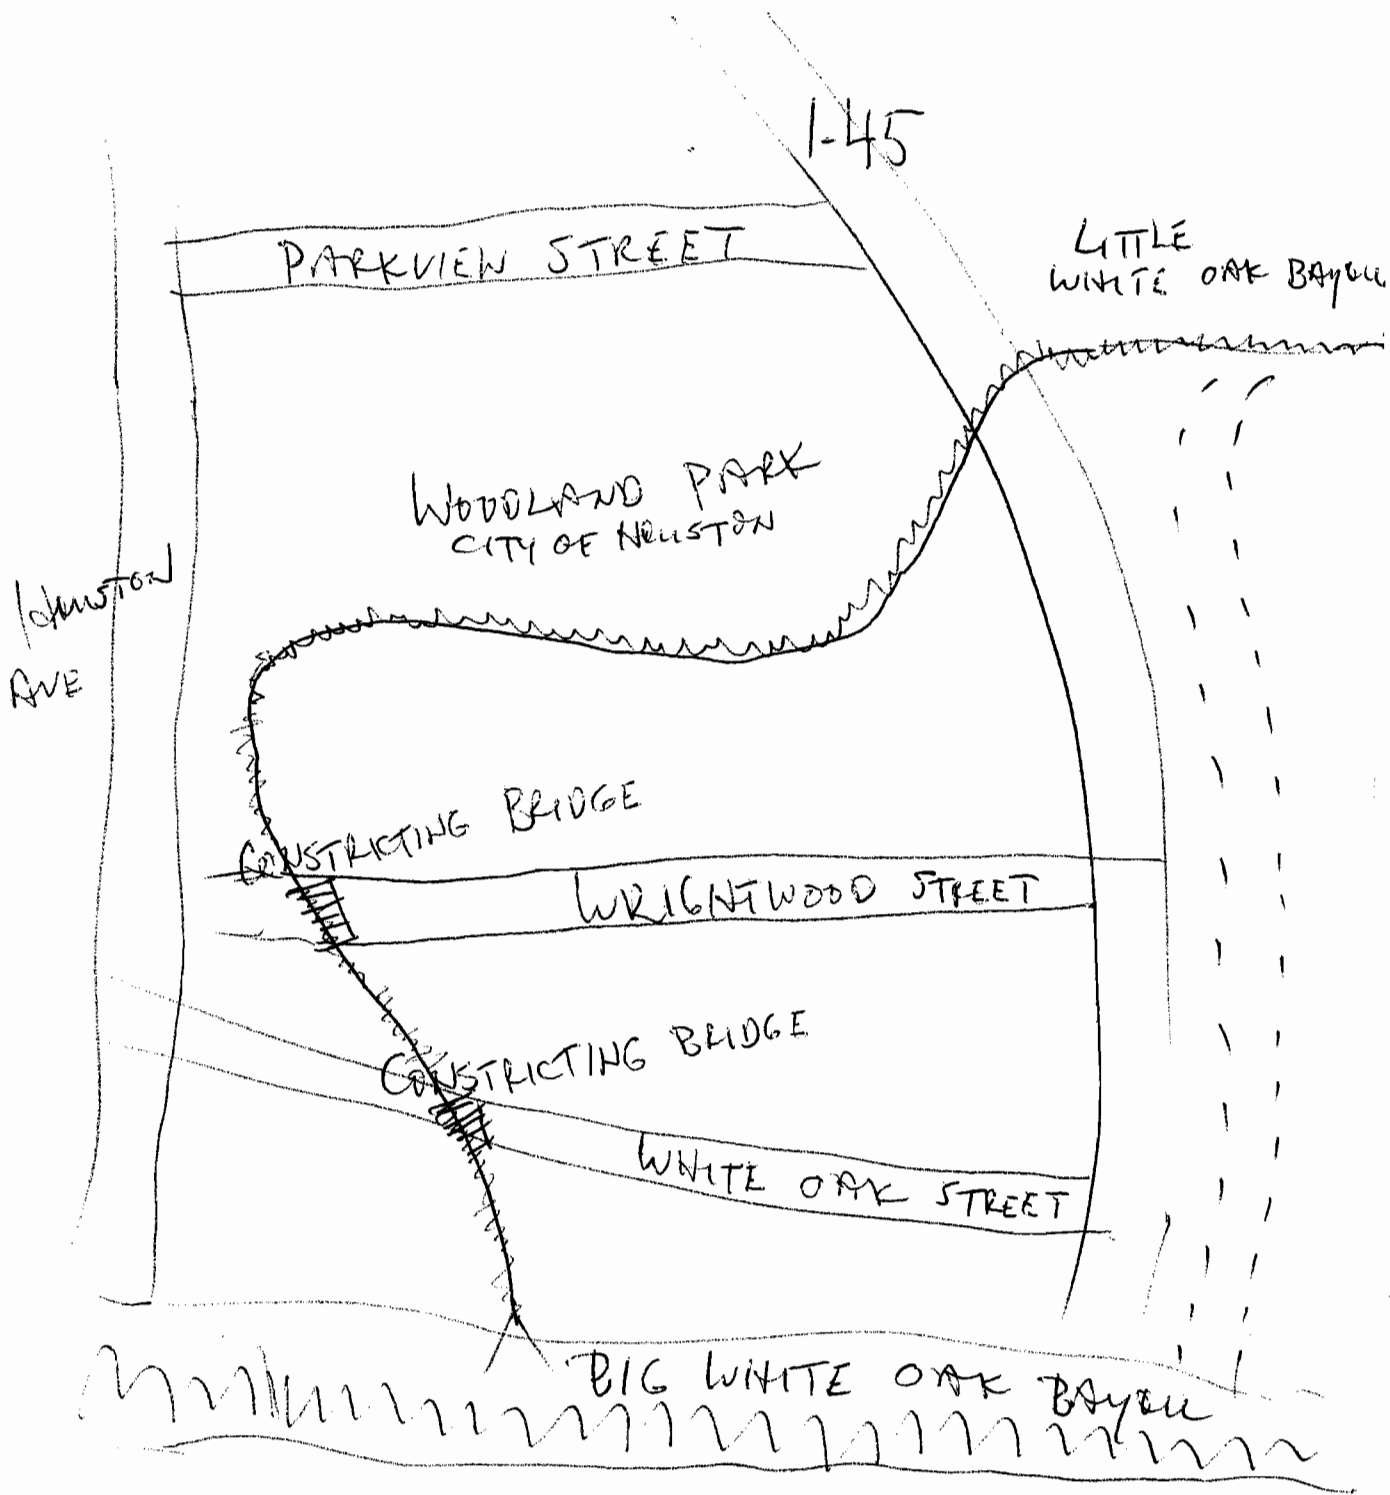 I-45
PARKVIEW STREET
LITTLE
WHITE OAK BAYOU
WOODLAND PARK
CITY OF HOUSTON
HOUSTON
AVE
CONSTRICTING BRIDGE
WRIGHTWOOD STREET
CONSTRICTING BRIDGE
WHITE OAK STREET
BIG WHITE OAK BAYOU